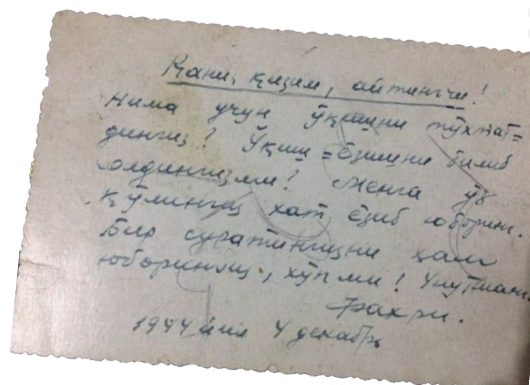 Қани, қизим, айтингчи!
Нима учун ўқишни тўхтат=
дингиз? Ўқиш=ёзишни билиб
олдингизми? Менга ўз
қўлингиз хат ёзиб юборинг.
Бир суратингизни ҳам
юборингиз, хўпми! Унутманг.
Фахри.
1944 йил 4 декабрь